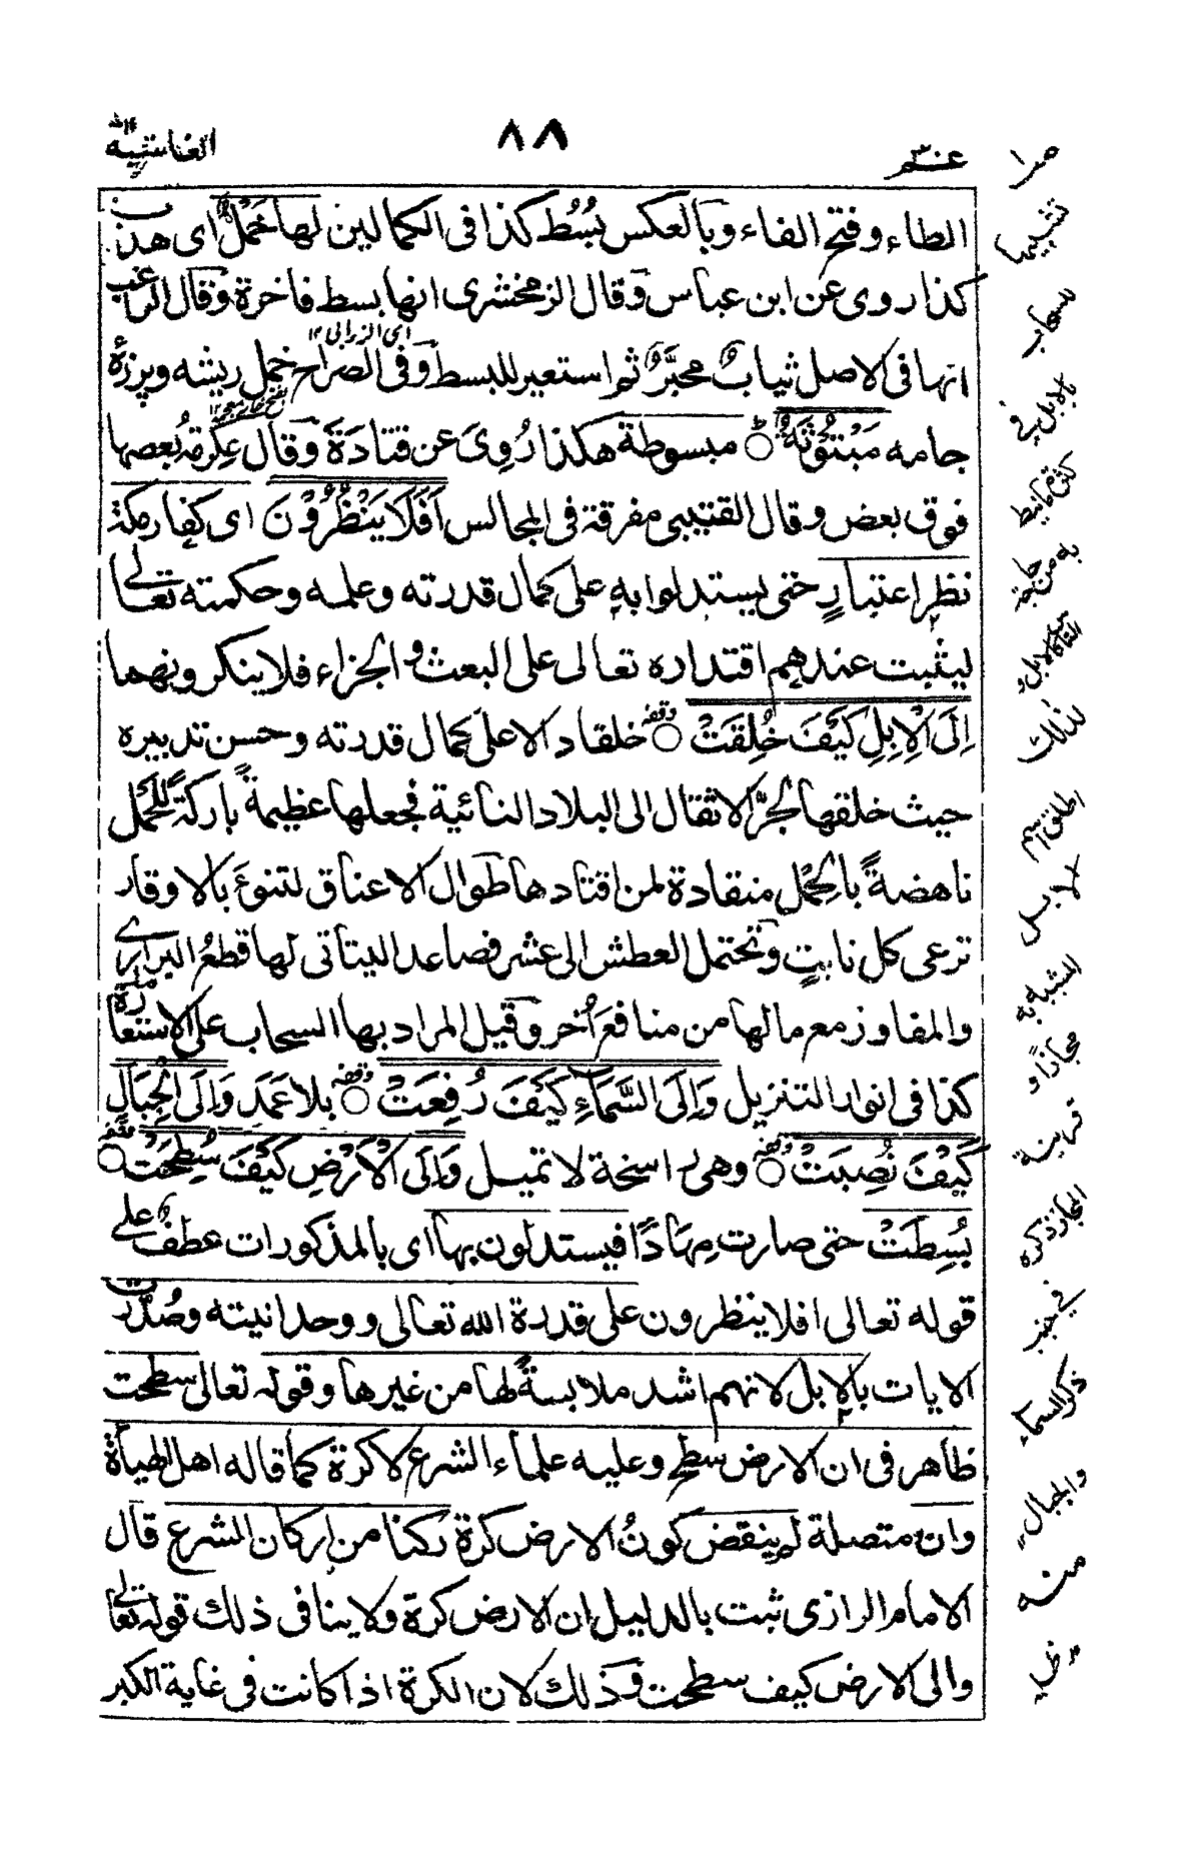 عم
٨٨
الغاشية
الطاء وفتح الفاء وبالعكس بُسُط كذا فى الكمالين لها خَمْلٌ اى هذب
كذا روى عن ابن عباس وقال الزمخشرى انها بسط فاخرة وقال الراغب
انها فى الاصل ثياب محبَّرٌ ثم استعير للبسط وفى الصراح خمل ريشه وپرزۀ
اى الزرابى ١٢
جامه مَبْثُوثَةٌ ط مبسوطة هكذا رُوِىَ عن قتادة وقال عكرمة بعضها
فوق بعض وقال القتيبى مفرقة فى المجالس اَفَلَا يَنْظُرُوْنَ اى كفار مكة
نظر اعتبارٍ حتى يستدلوا به على كمال قدرته وعلمه وحكمته تعالى
ليثبت عندهم اقتداره تعالى على البعث والجزاء فلا ينكرونهما
اِلَى الْاِبِلِ كَيْفَ خُلِقَتْ وقفة خلقا دالا على كمال قدرته وحسن تدبيره
حيث خلقها لجرّ الاثقال الى البلاد النائية فجعلها عظيمةً باركةً للحمل
ناهضةً بالحِمل منقادة لمن اقتادها طوال الاعناق لتنوءَ بالاوقار
ترعى كل نابتٍ وتحتمل العطش الى عشر فصاعدا ليتأتى لها قطعُ البرارى
والمفاوز مع مالها من منافعَ اُخر وقيل المراد بها السحاب على الاستعارة
كذا فى انوار التنزيل وَاِلَى السَّمَآءِ كَيْفَ رُفِعَتْ وقفة بلا عَمَدٍ وَاِلَى الْجِبَالِ
كَيْفَ نُصِبَتْ وقفة وهى راسخة لا تميل وَاِلَى الْاَرْضِ كَيْفَ سُطِحَتْ وقفة
بُسِطَتْ حتى صارت مِهَادًا فيستدلون بها اى بالمذكورات عطف على
قوله تعالى افلا ينظرون على قدرة الله تعالى ووحدانيته وصُدّرت
الايات بالابل لانهم اشد ملابسةً لها من غيرها وقوله تعالى سطحت
ظاهر فى ان الارض سطح وعليه علماء الشرع لاكرة كما قاله اهل الهيأة
وان متصلة لم ينقض كونُ الارض كرة ركنا من اركان الشرع قال
الامام الرازى ثبت بالدليل ان الارض كرة ولا ينافى ذلك قوله تعالى
والى الارض كيف سطحت وذلك لان الكرة اذا كانت فى غاية الكبر
تشبيها
سحاب
بالابل فى
به من
لذلك
اطلق اسم
الابل
المشبه به
مجازًا و
قرينة
المجاز ذكره
فى جنب
ذكر السماء
والجبال
منه